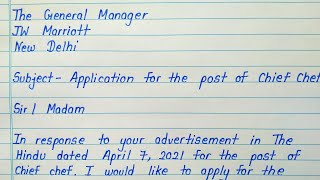 The General Manager
JW Marriott
New Delhi
Subject- Application for the post of Chief Chef
Sir/ Madam
In response to your advertisement in The
Hindu dated April 7, 2021 for the post of
Chief chef. I would like to apply for the